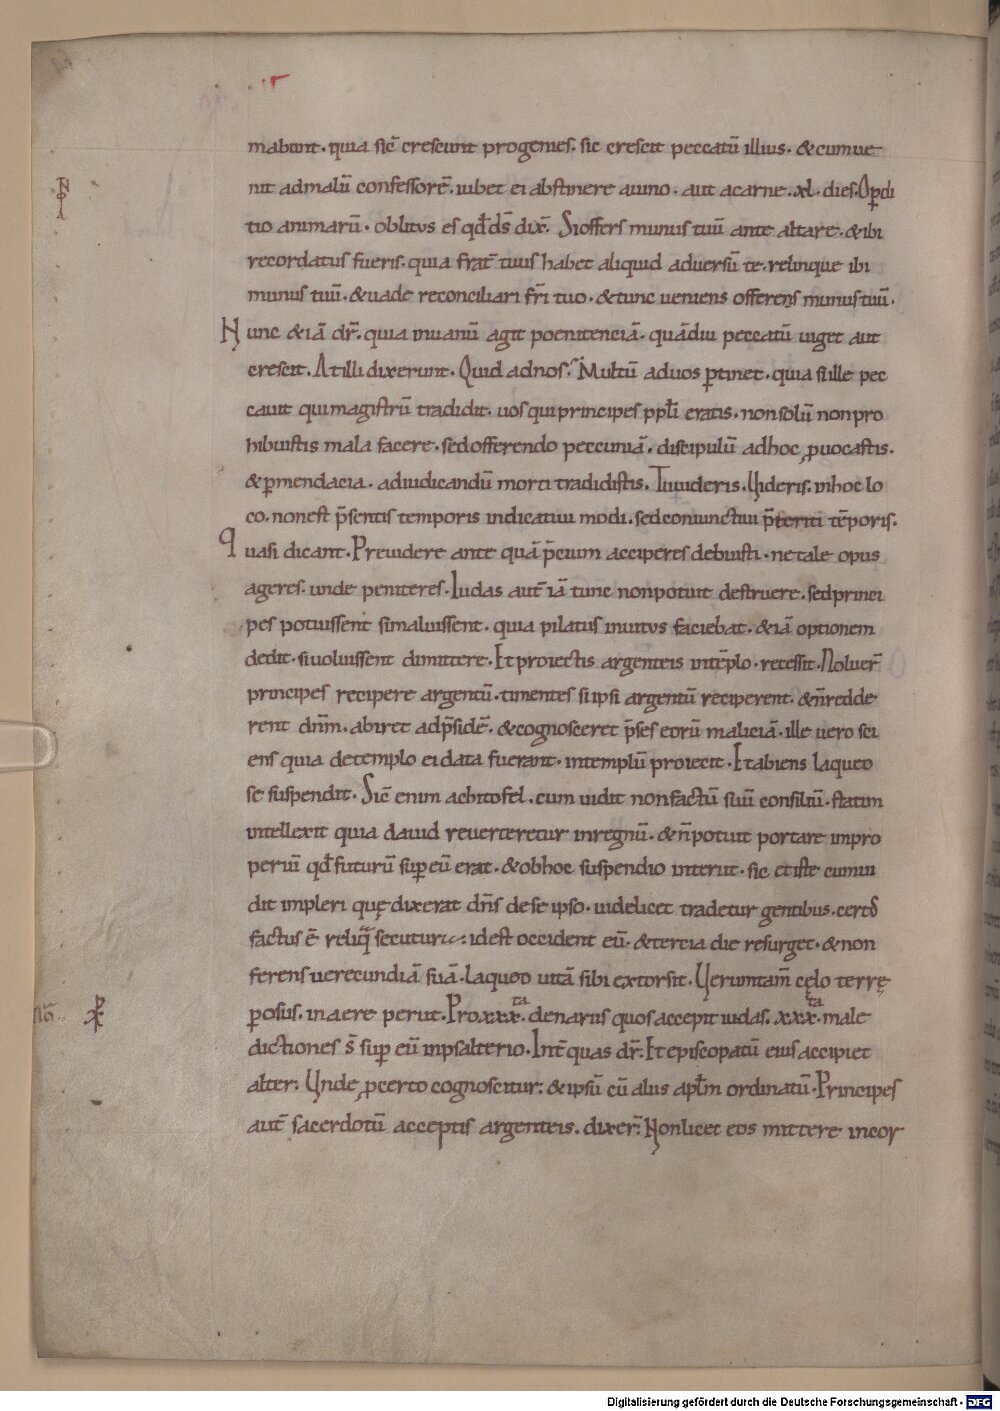 mabunt. quia sic̄ crescunt progenies. sic crescit peccatū illius. &cumue
nit admalū confessorē. iubet ei abstinere auino. aut acarne. xl. dies. O ꝑdi
tio animarū. oblitus es qđ ds̄ dix̄. Sioffers munus tuū ante altare. &ibi
recordatus fueris. quia frat̄ tuus habet aliquid aduersū te. relinque ibi
munus tuū. &uade reconciliari fr̄i tuo. &tunc ueniens offerens munus tuū.
Nunc &iā dr̄. quia inuanū agit poenitenciā. quādiu peccatū uiget aut
crescit. Atilli dixerunt. Quid adnos? Multū aduos ꝑtinet. quia siille pec
cauit quimagistrū tradidit. uos quiprincipes ppl̄i eratis. nonsolū nonpro
hibuistis mala facere. sedofferendo peccuniā. discipulū adhoc ꝓuocastis.
&ꝑmendacia. adiudicandū morti tradidistis. Tuuideris. Uideris. inhoc lo
co. nonest p̄sentis temporis indicatiui modi. sedconiunctiui p̄teriti tēporis.
quasi dicant. Preuidere ante quā p̄cium acciperes debuisti. ne tale opus
ageres. unde peniteres. Iudas aut̄ iā tunc nonpotuit destruere. sedprinci
pes potuissent simaluissent. quia pilatus inuitus faciebat. &iā optionem
dedit. siuoluissent dimittere. Et proiectis argenteis intēplo. recessit. Noluer̄
principes recipere argentū. timentes siipsi argentū reciperent. &n̄redde
rent dnm̄. abiret adp̄sidē. &cognosceret p̄ses eorū maliciā. ille uero sci
ens quia detemplo ei data fuerant. intemplū proiecit. Et abiens laqueo
se suspendit. Sic̄ enim achitofel. cum uidit nonfactū suū consiliū. statim
intellexit quia dauid reuerteretur inregnū. &n̄potuit portare impro
periū qđ futurū suꝑ eū erat. &obhoc suspendio interiit. sic et iste cumui
dit impleri quę dixerat dn̄s de se ipso. uidelicet tradetur gentibus. certus
factus ē reliq̄ secutura. idest occident eū. &tercia die resurget. &non
ferens uerecundiā suā. laqueo uitā sibi extorsit. Ueruntam̄ cęlo terrę
ꝑosus. in aere periit. Pro xxx.ta denariis quos accepit iudas. xxx.ta male
dictiones s̄ suꝑ eū inpsalterio. Int̄ quas dr̄. Et episcopatū eius accipiet
alter. Unde ꝓcerto cognoscitur. &ipsū cū aliis apl̄m ordinatū. Principes
aut̄ sacerdotū acceptis argenteis. dixer̄. Nonlicet eos mittere incor
Digitalisierung gefördert durch die Deutsche Forschungsgemeinschaft - DFG